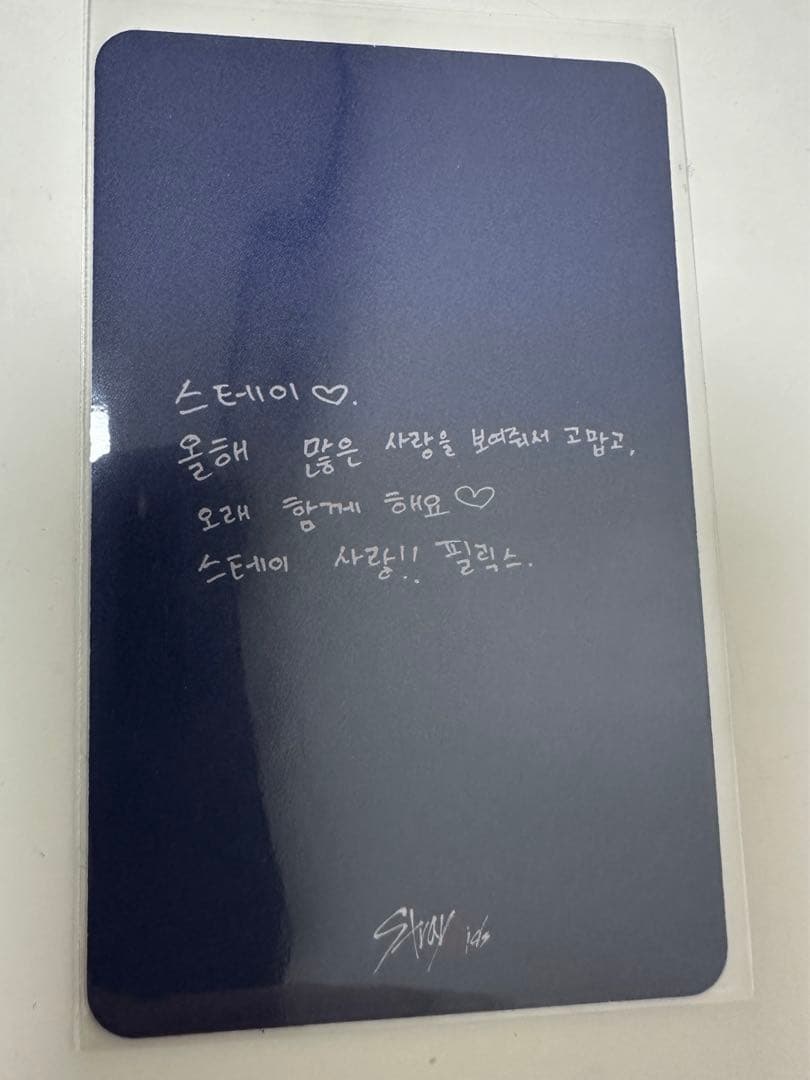 스테이♡.
올해 많은 사랑을 보여줘서 고맙고,
오래 함께 해요♡
스테이 사랑!! 필릭스.
Stray ids